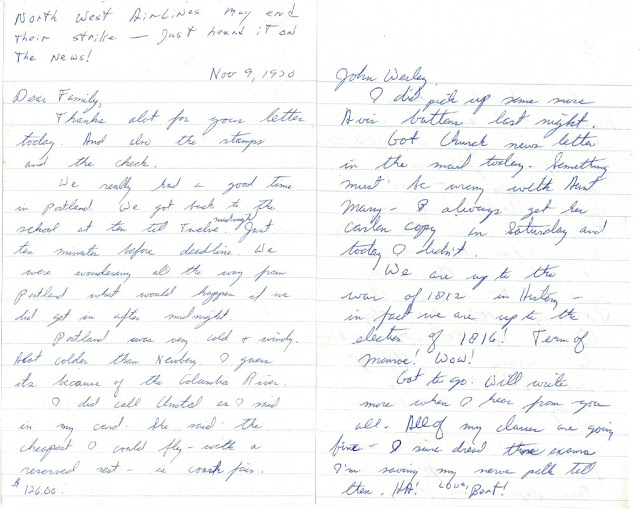 North West Airlines may end
their strike — Just heard it on
the News!
Nov 9, 1970
Dear Family,
Thanks alot for your letter
today. And also the stamps
and the check.
We really had a good time
in Portland. We got back to the
school at ten till Twelve midnight. Just
ten minutes before deadline. We
were wondering all the way from
Portland what would happen if we
did get in after midnight.
Portland was very cold & windy.
Alot colder than Newberg. I guess
its because of the Columbia River.
I did call United as I said
in my card. She said the
cheapest I could fly - with a
reserved seat - is coach fair.
$126.00.
John Wesley,
I did pick up some more
Avis buttons last night.
Got Church news letter
in the mail today. Something
must be wrong with Aunt
Mary - I always get her
carbon copy on Saturday and
today I didn't.
We are up to the
war of 1812 in History -
in fact we are up to the
election of 1816! Term of
Monroe! Wow!
Got to go. Will write
more when I hear from you
all. All of my classes are going
fine - I sure dread those exams
I'm saving my nerve pills till
then. HA! Love, Bert!